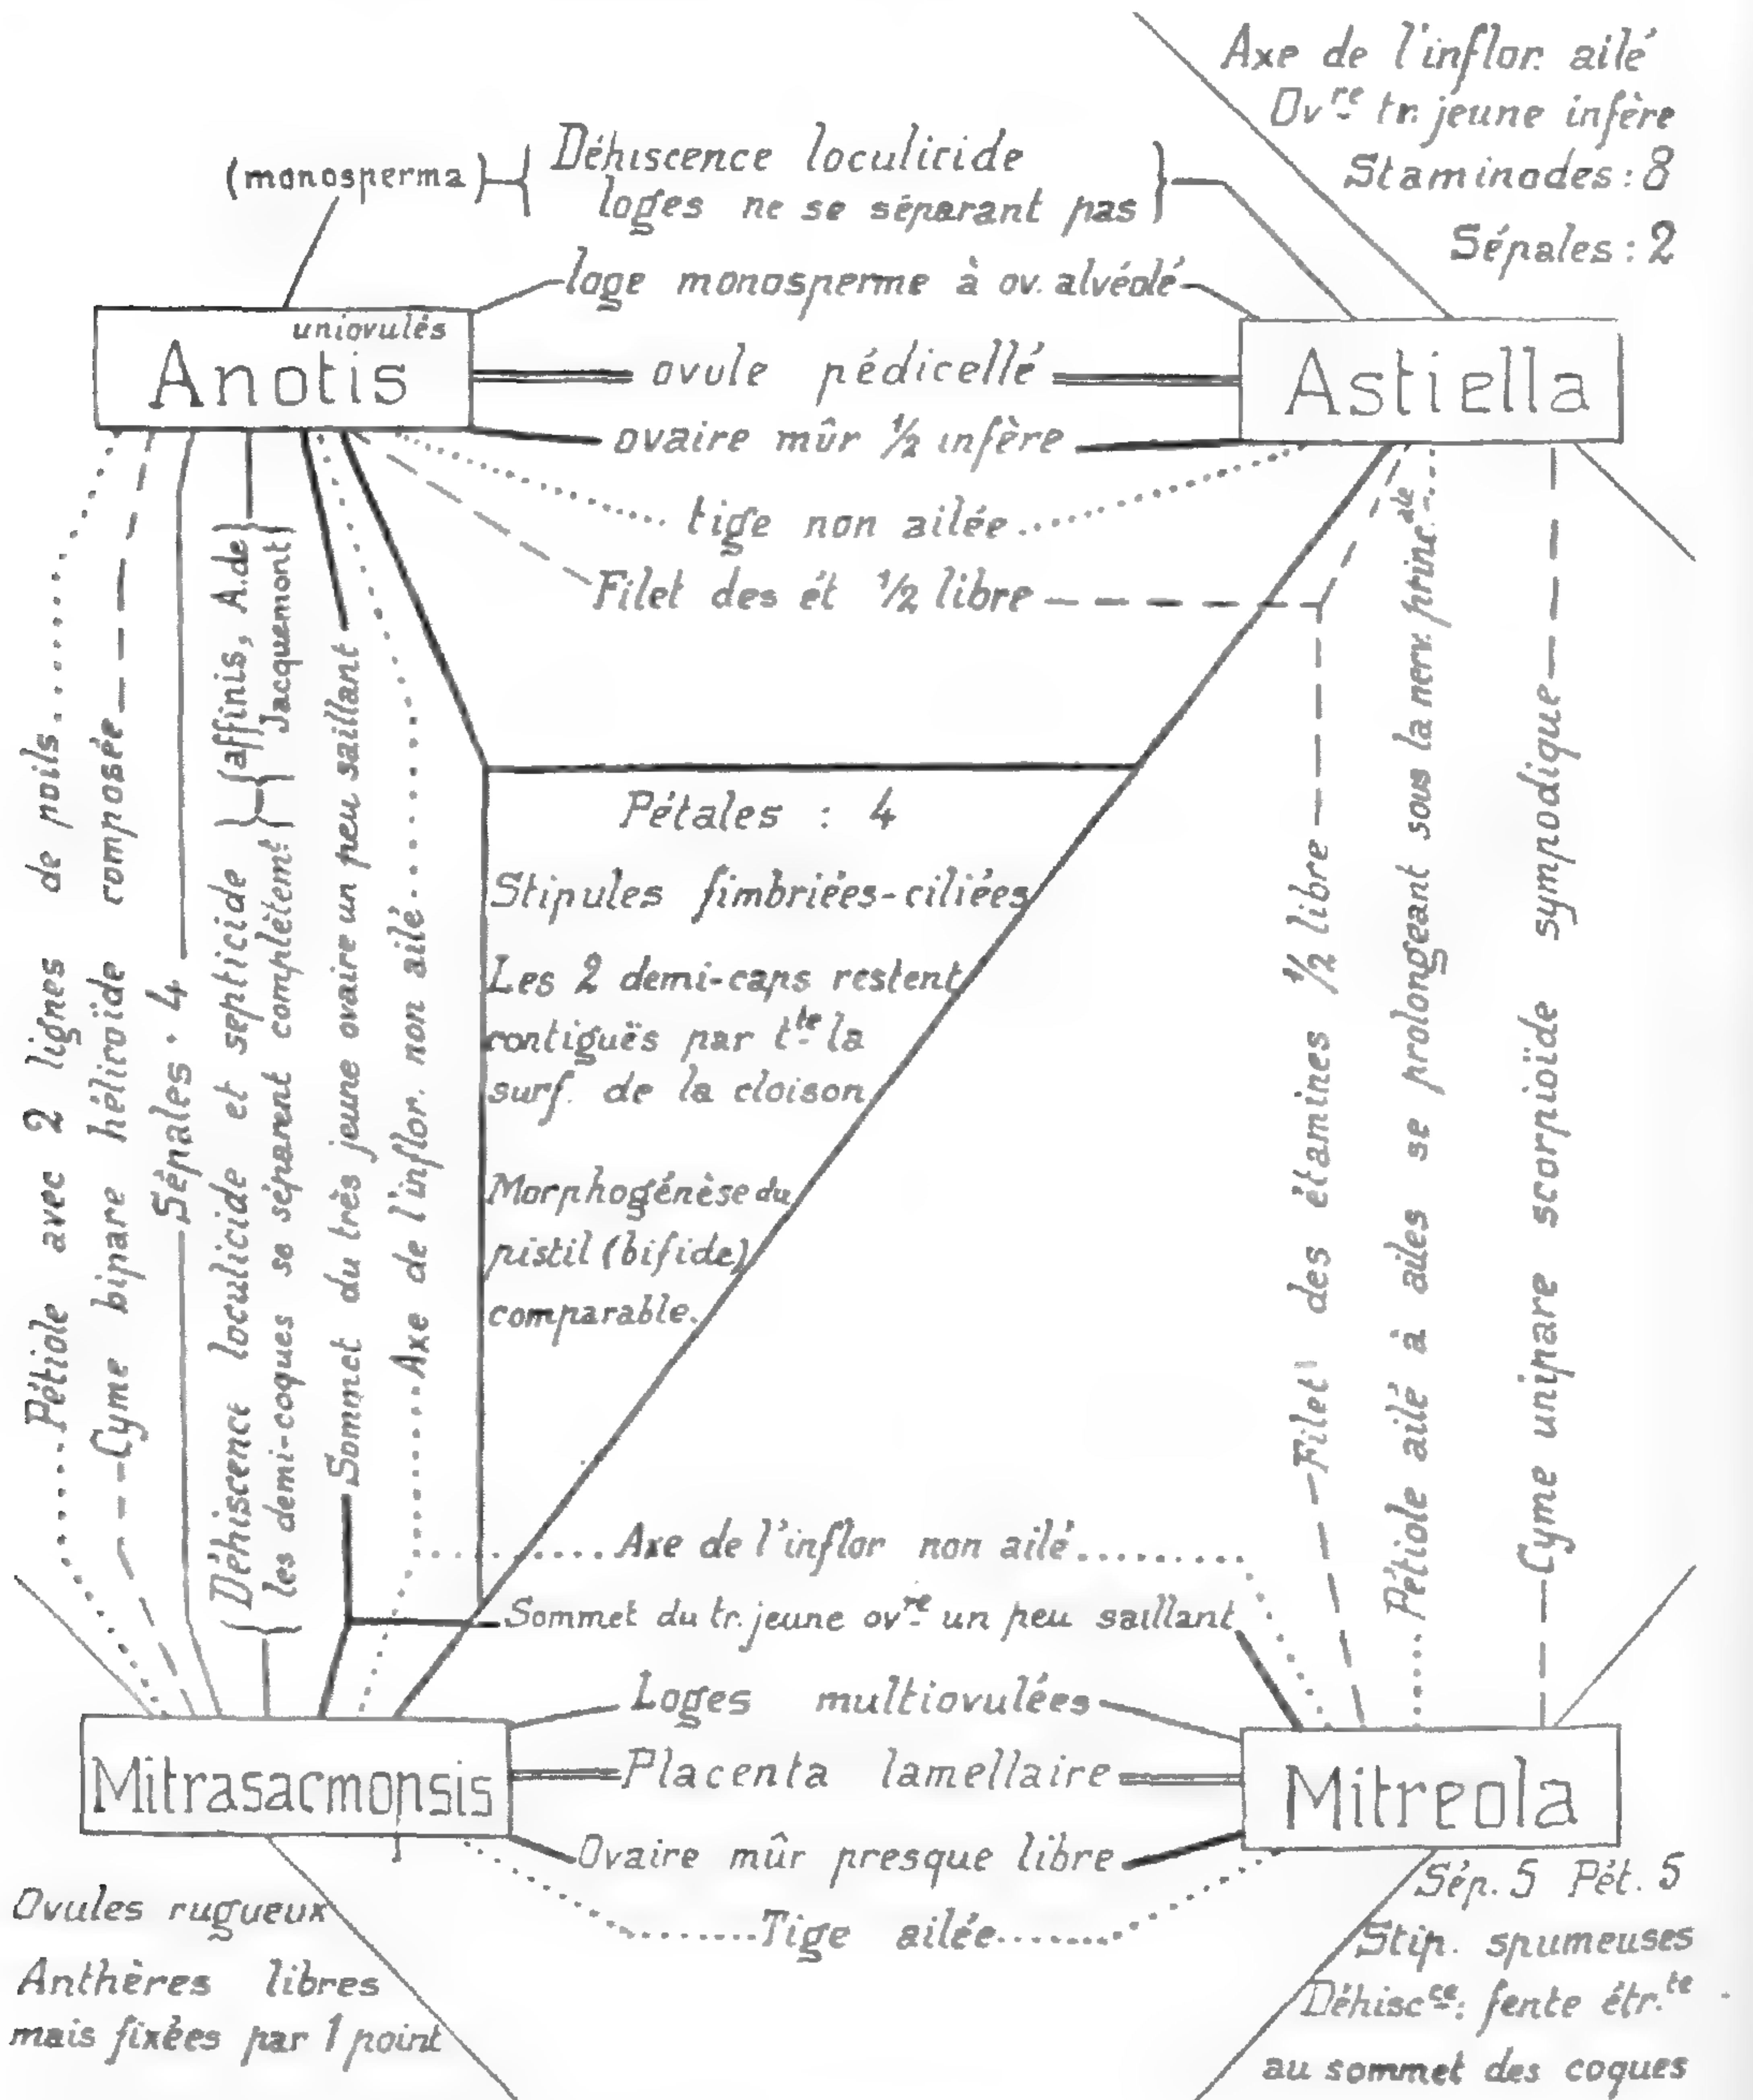 Axe de l'inflor. ailé
Ov.re tr. jeune infère
Staminodes : 8
Sépales : 2
(monosperma)
Déhiscence loculicide
loges ne se séparant pas
loge monosperme à ov. alvéolé
uniovulés
Anotis
ovule pédicellé
Astiella
ovaire mûr 1/2 infère
tige non ailée
Filet des ét 1/2 libre
Pétiole avec 2 lignes de poils
Cyme bipare hélicoïde composée
Sépales • 4
Déhiscence loculicide et septicide
les demi-coques se séparent complètemt
(affinis, A.de
Jacquemont)
Sommet du très jeune ovaire un peu saillant
Axe de l'inflor. non ailé
Pétales : 4
Stipules fimbriées-ciliées
Les 2 demi-caps restent
contiguës par tte la
surf. de la cloison
Morphogénèse du
pistil (bifide)
comparable.
Filet des étamines 1/2 libre
Pétiole ailé à ailes se prolongeant sous la nerv. princ.ale
Cyme unipare scorpioïde sympodique
Axe de l'inflor non ailé
Sommet du tr. jeune ov.re un peu saillant
Loges multiovulées
Mitrasacmopsis
Placenta lamellaire
Mitreola
Ovaire mûr presque libre
Tige ailée
Ovules rugueux
Anthères libres
mais fixées par 1 point
Sép. 5 Pét. 5
Stip. spumeuses
Déhisc.ce : fente étr.te
au sommet des coques